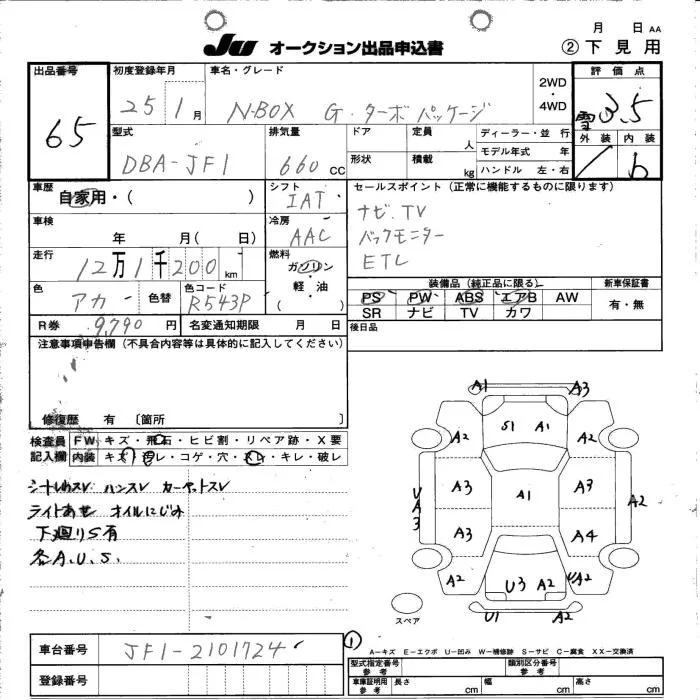 月 日 AA
JU オークション出品申込書 ② 下見用
出品番号 初度登録年月 車名・グレード 2WD・4WD 評価点
65 25 1月 N-BOX G・ターボパッケージ 3.5
外装 内装
b
型式 排気量 ドア 定員 人 ディーラー・並行
DBA-JF1 660cc 形状 積載 kg モデル年式 年
ハンドル 左・右
車歴 シフト セールスポイント(正常に機能するものに限ります)
自家用・( ) IAT
ナビ.TV
車検 冷房 バックモニター
年 月( 日) AAC
走行 燃料
12万1千200km ガソリン・軽・油( )
装備品(純正品に限る) 新車保証書
色 色替 色コード PS PW ABS エアB AW 有・無
アカ R543P SR ナビ TV カワ
R券 9,790円 名変通知期限 月 日 後日品
注意事項申告欄(不具合内容等は具体的に記入してください)
修復歴 有 〔箇所 〕
検査員記入欄 FW キズ・飛石・ヒビ割・リペア跡・X要
内装 キズ・汚レ・コゲ・穴・スレ・キレ・破レ
ライトあせ オイルにじみ
下廻りS有
各A.U.S.
A1 A3
A2 S1 A1 A2
UA3 A3 A1 A3 A2
A3 A4
A2 U3 A2 UA2
U1 A2
スペア
①
A-キズ E-エクボ U-凹み W-補修跡 S-サビ C-腐食 XX-交換済
車台番号 JF1-2101724
型式指定番号 参考 類別区分番号 参考
登録番号
車庫証明用 参考 長さ cm 幅 cm 高さ cm